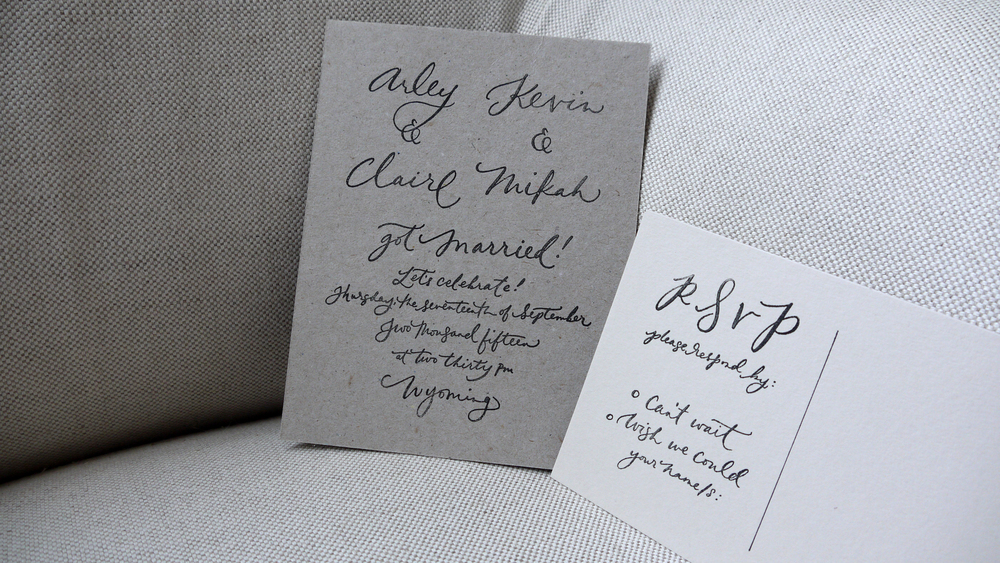 Arley Kevin
& &
Claire Mikah
got married!
Let's celebrate!
Thursday, the seventeenth of September
Two thousand fifteen
at two thirty pm
Wyoming
RSVP
please respond by:
Can't wait
Wish we could
your name/s: